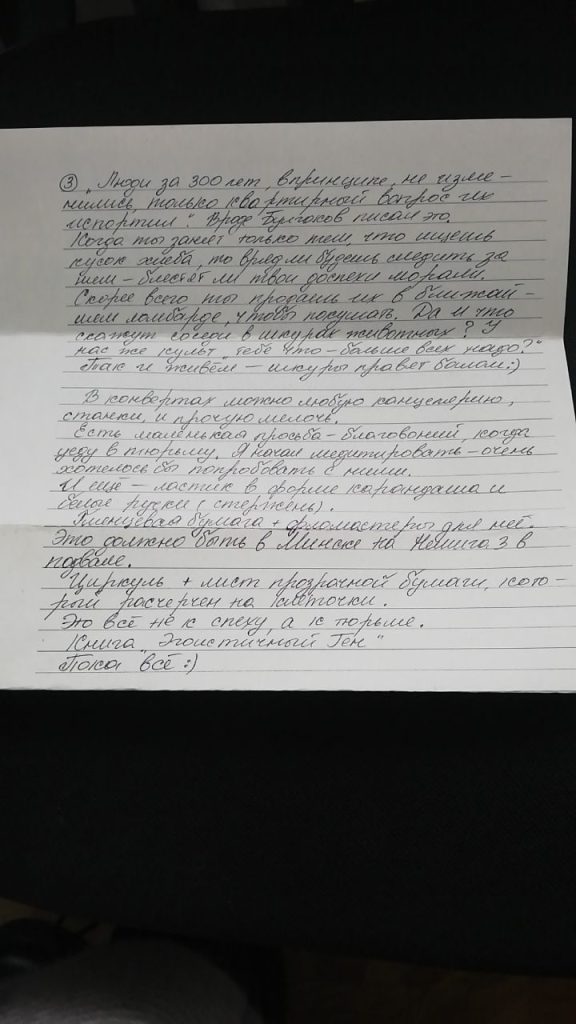 ③ „Люди за 300 лет, впринципе, не изме-
нились, только квартирной вопрос их
испортил". Вроде Булгаков писал это.
Когда ты занят только тем, что ищешь
кусок хлеба, то вряд ли будешь следить за
тем – блестят ли твои доспехи морали.
Скорее всего ты продашь их в ближай-
шем ломбарде, чтобы покушать. Да и что
скажут соседи в шкурах животных? У
нас же культ „тебе что – больше всех надо?"
Так и живём – шкуры правят балом :)
В конвертах можно любую канцелярию,
станки, и прочую мелочь.
Есть маленькая просьба – благовоний, когда
уеду в тюрьму. Я начал медитировать – очень
хотелось бы попробовать с ними.
И ещё – ластик в форме карандаша и
белые ручки (стержень).
Глянцевая бумага + фломастеры для неё.
Это должно быть в Минске на Немига 3 в
подвале.
Циркуль + лист прозрачной бумаги, кото-
рый расчерчен на клеточки.
Это всё не к спеху, а к тюрьме.
Книга „Эгоистичный Ген"
Пока всё :)